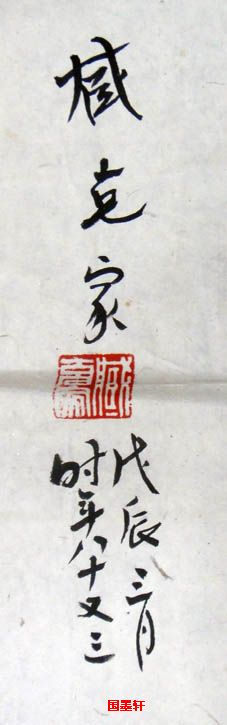 臧克家
戊辰三月
时年八十又三
国墨轩